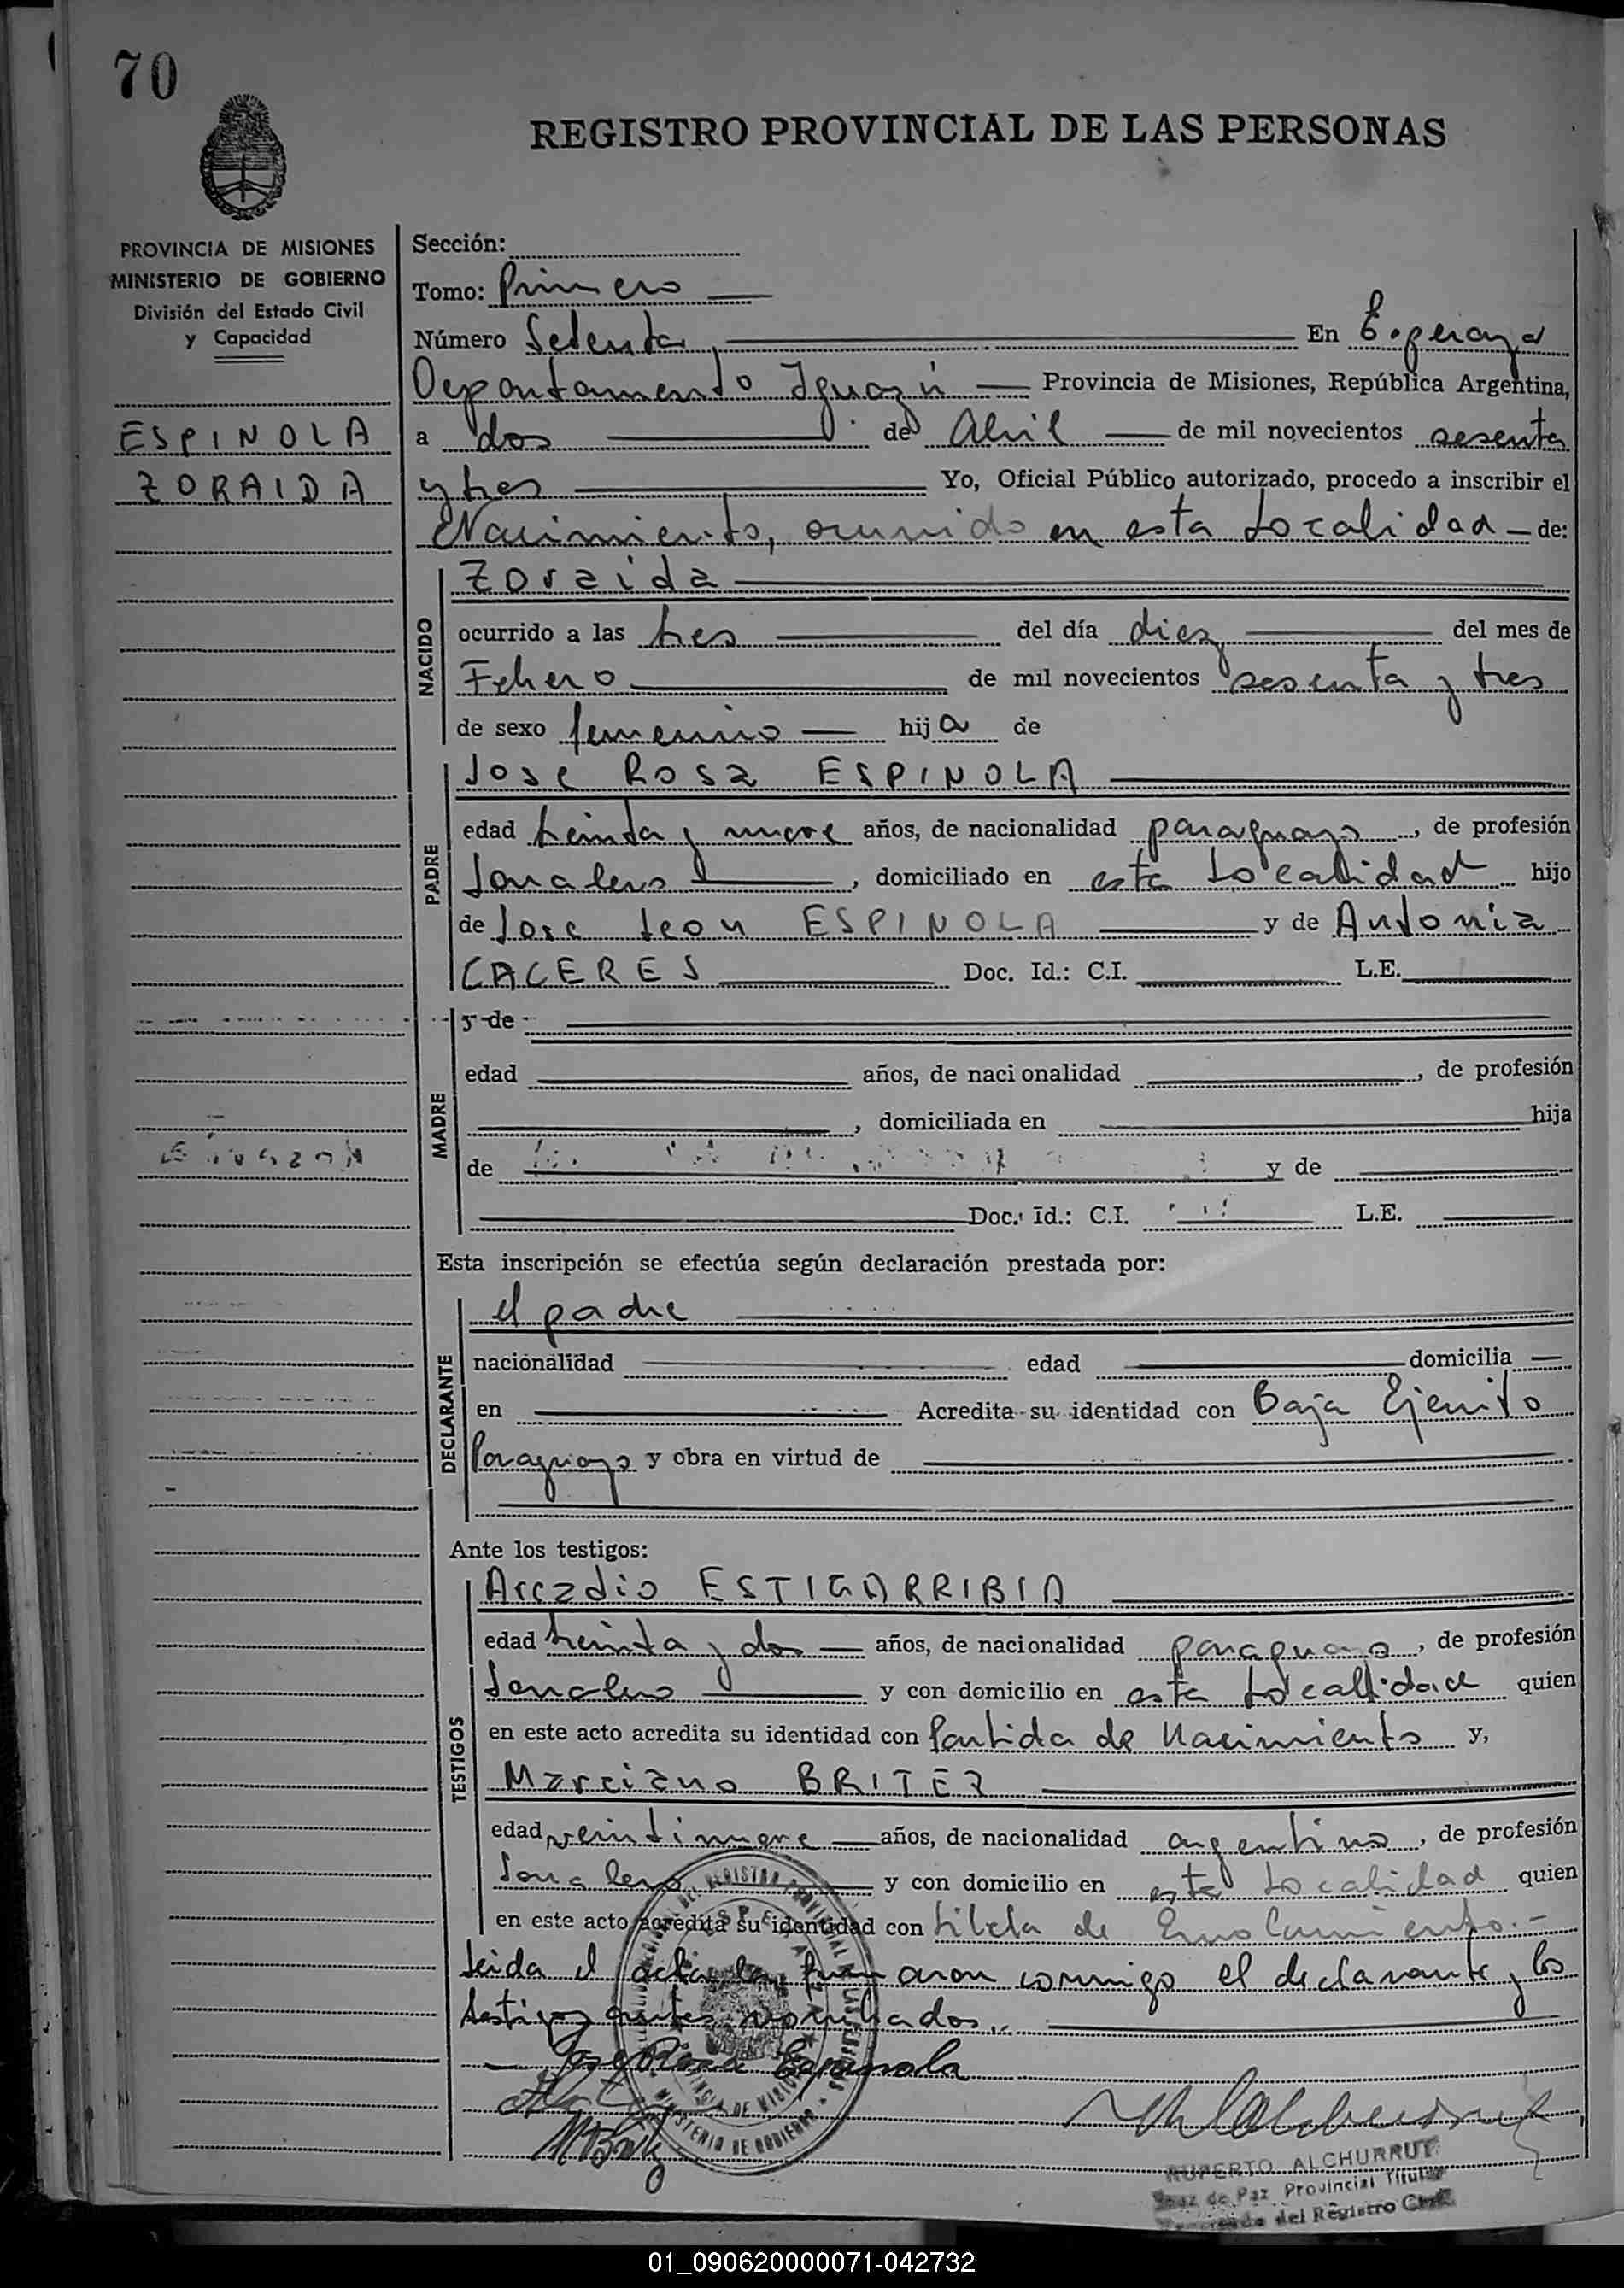 70
REGISTRO PROVINCIAL DE LAS PERSONAS
PROVINCIA DE MISIONES
MINISTERIO DE GOBIERNO
División del Estado Civil
y Capacidad
ESPINOLA
ZORAIDA
Sección:
Tomo: Primero
Número Setenta, En Esperanza
Departamento Iguazú Provincia de Misiones, República Argentina,
a dos de Abril de mil novecientos sesenta
y tres Yo, Oficial Público autorizado, procedo a inscribir el
Nacimiento, ocurrido en esta Localidad de:
NACIDO
Zoraida
ocurrido a las tres del día diez del mes de
Febrero de mil novecientos sesenta y tres
de sexo femenino hija de
PADRE
Jose Rosa ESPINOLA
edad treinta y nueve años, de nacionalidad paraguayo, de profesión
Jornalero, domiciliado en esta Localidad hijo
de Jose Leon ESPINOLA y de Antonia
CACERES Doc. Id.: C.I. L.E.
MADRE
y de
edad años, de nacionalidad , de profesión
, domiciliada en hija
de y de
Doc. Id.: C.I. L.E.
Esta inscripción se efectúa según declaración prestada por:
DECLARANTE
el padre
nacionalidad edad domicilia
en Acredita su identidad con Baja Ejercito
Paraguayo y obra en virtud de
Ante los testigos:
TESTIGOS
Arcadio ESTIGARRIBIA
edad treinta y dos años, de nacionalidad paraguayo, de profesión
Jornalero y con domicilio en esta Localidad quien
en este acto acredita su identidad con Partida de Nacimiento y,
Marciano BRITEZ
edad veintinueve años, de nacionalidad argentino, de profesión
Jornalero y con domicilio en esta Localidad quien
en este acto acredita su identidad con Libreta de Enrolamiento.-
Leida el acta la firmaron conmigo el declarante y los
testigos antes nombrados.
Jose Rosa Espinola
M Britez
RUPERTO ALCHURRUT
Juez de Paz Provincial Titular
Encargado del Registro Civil
01_090620000071-042732